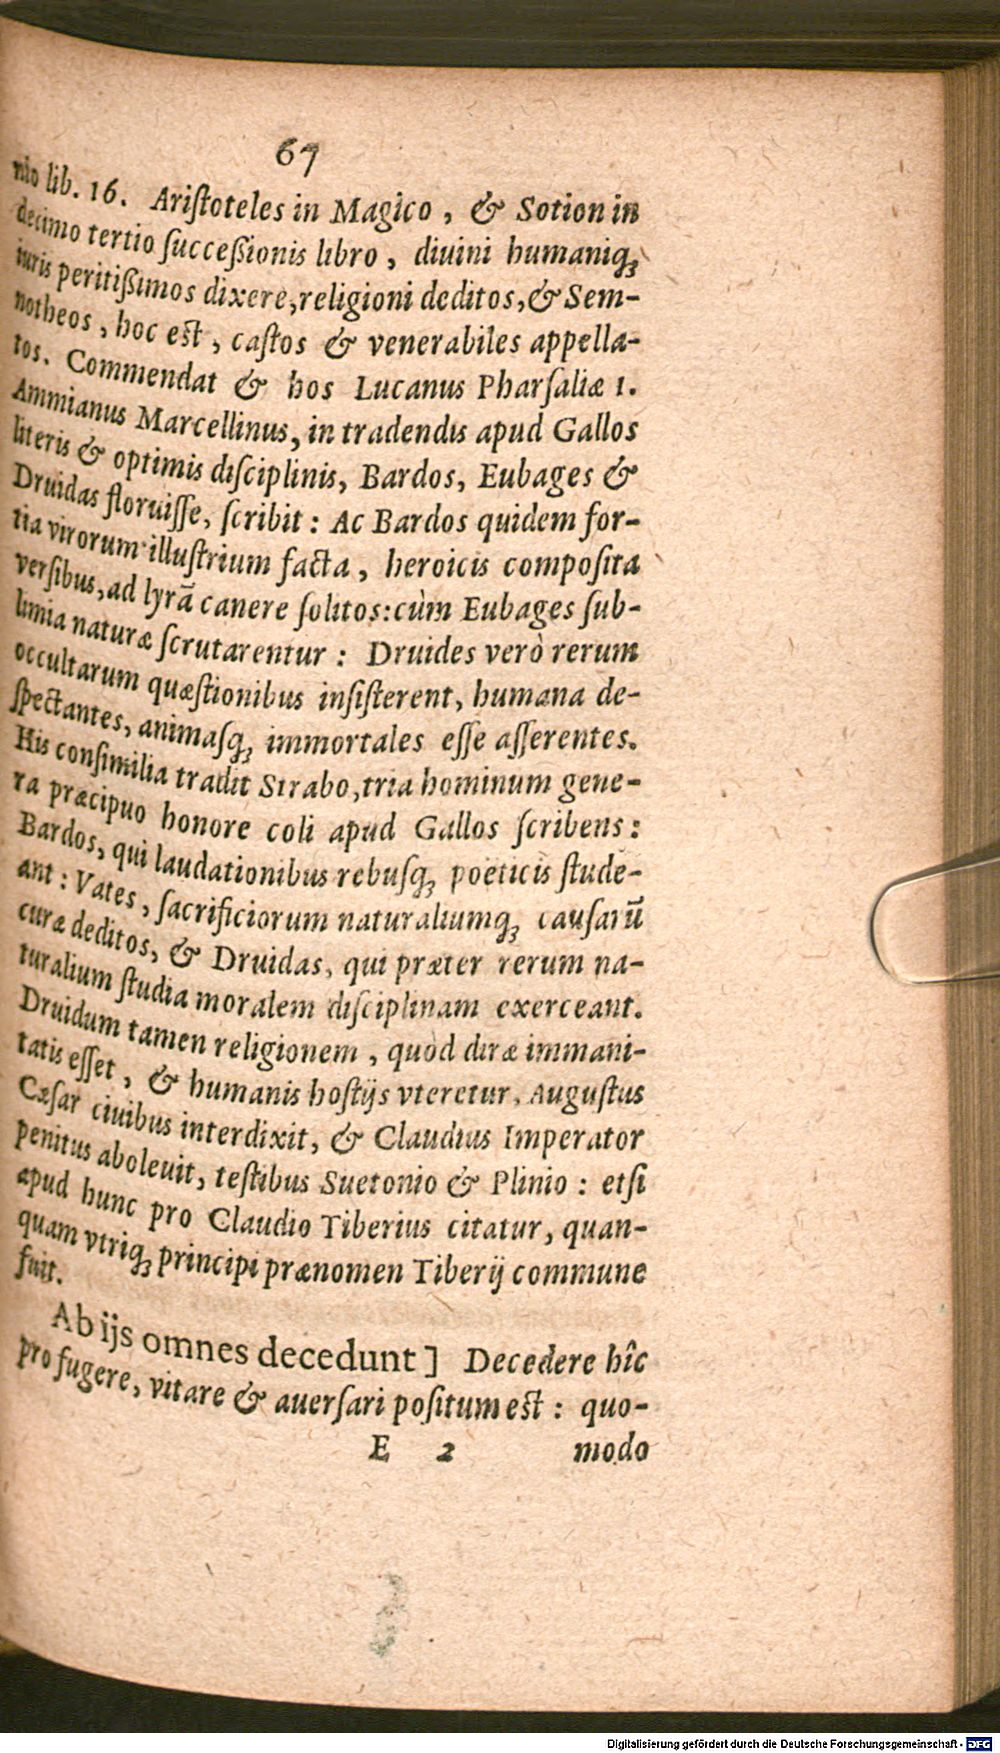 67
nio lib. 16. Ariſtoteles in Magico, & Sotion in
decimo tertio ſucceßionis libro, diuini humaniq;
iuris peritißimos dixere, religioni deditos, & Sem-
notheos, hoc eſt, caſtos & venerabiles appella-
tos. Commendat & hos Lucanus Pharſaliæ 1.
Ammianus Marcellinus, in tradendis apud Gallos
literis & optimis diſciplinis, Bardos, Eubages &
Druidas floruiſſe, ſcribit: Ac Bardos quidem for-
tia virorum illuſtrium facta, heroicis compoſita
verſibus, ad lyrā canere ſolitos: cùm Eubages ſub-
limia naturæ ſcrutarentur: Druides verò rerum
occultarum quæſtionibus inſiſterent, humana de-
ſpectantes, animaſq; immortales eſſe aſſerentes.
His conſimilia tradit Strabo, tria hominum gene-
ra præcipuo honore coli apud Gallos ſcribens:
Bardos, qui laudationibus rebuſq; poëticis ſtude-
ant: Vates, ſacrificiorum naturaliumq; cauſarū
curæ deditos, & Druidas, qui præter rerum na-
turalium ſtudia moralem diſciplinam exerceant.
Druidum tamen religionem, quòd diræ immani-
tatis eſſet, & humanis hoſtijs vteretur, Auguſtus
Cæſar ciuibus interdixit, & Claudius Imperator
penitus aboleuit, teſtibus Suetonio & Plinio: etſi
apud hunc pro Claudio Tiberius citatur, quan-
quam vtriq; principi prænomen Tiberij commune
fuit.
Ab ijs omnes decedunt] Decedere hîc
pro fugere, vitare & auerſari poſitum eſt: quo-
E 2 modo
Digitalisierung gefördert durch die Deutsche Forschungsgemeinschaft - DFG